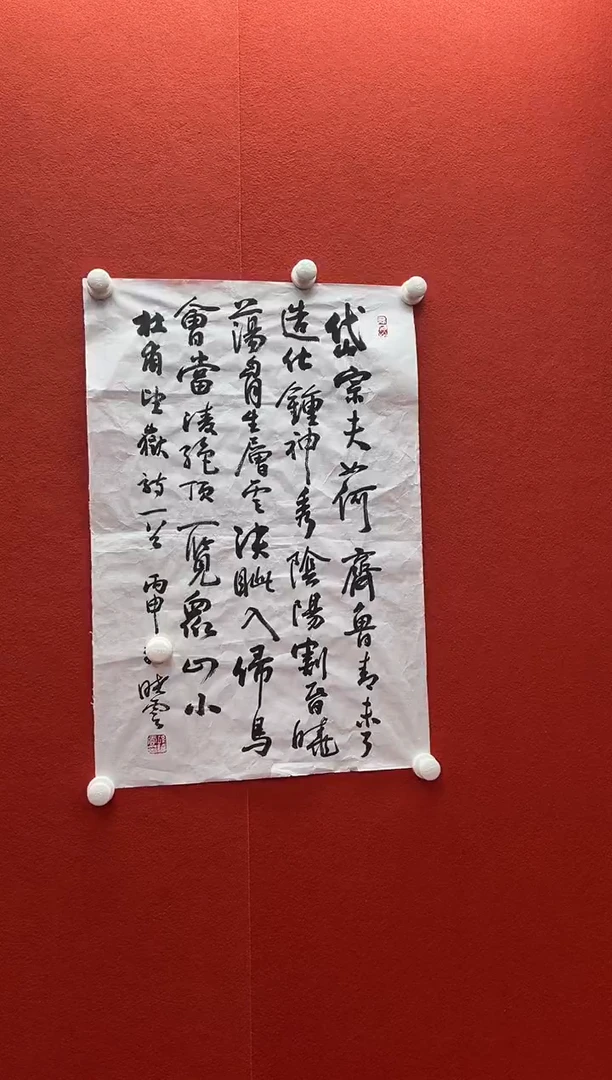 岱宗夫荷齊魯青未了
造化鍾神秀陰陽割昏曉
蕩胷生層雲決眦入歸鳥
會當凌絕頂一覽眾山小
杜甫望嶽詩一首 丙申 曉雲